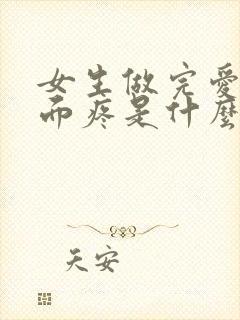 女生做完爱
而疼是什麽
天安